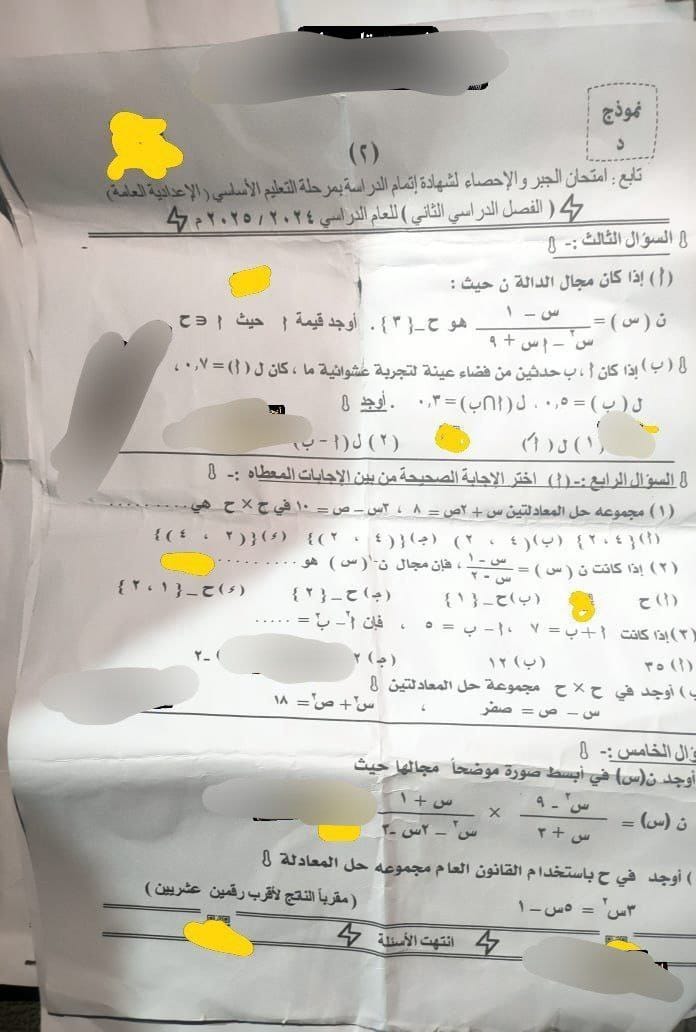 نموذج
د
(٢)
تابع : امتحان الجبر والإحصاء لشهادة إتمام الدراسة بمرحلة التعليم الأساسي ( الإعدادية العامة )
( الفصل الدراسي الثاني ) للعام الدراسي ٢٠٢٤ / ٢٠٢٥ م
السؤال الثالث :-
(أ) إذا كان مجال الدالة ن حيث :
ن (س) = (س - ١) / (س٢ - أ س + ٩) هو ح - {٣} . أوجد قيمة أ حيث أ ∈ ح
(ب) إذا كان أ ، ب حدثين من فضاء عينة لتجربة عشوائية ما ، كان ل (أ) = ٠,٧ ،
ل (ب) = ٠,٥ ، ل (أ∩ب) = ٠,٣ . أوجد
(١) ل (أ′) (٢) ل (أ - ب)
السؤال الرابع :- (أ) اختر الإجابة الصحيحة من بين الإجابات المعطاه :-
(١) مجموعه حل المعادلتين س + ٢ص = ٨ ، ٢س - ص = ١٠ في ح × ح هي ..........
(أ) {٤ ، ٢} (ب) (٤ ، ٢) (ج) {(٤ ، ٢)} (د) {(٢ ، ٤)}
(٢) إذا كانت ن (س) = (س - ١) / (س - ٢) ، فإن مجال ن-١ (س) هو ..........
(أ) ح (ب) ح - {١} (ج) ح - {٢} (د) ح - {١ ، ٢}
(٣) إذا كانت أ + ب = ٧ ، أ - ب = ٥ ، فإن أ٢ - ب٢ = .....
(أ) ٣٥ (ب) ١٢ (ج) ٢ - ٢
ب) أوجد في ح × ح مجموعة حل المعادلتين
س - ص = صفر ، س٢ + ص٢ = ١٨
ؤال الخامس :-
أوجد ن(س) في أبسط صورة موضحاً مجالها حيث
ن (س) = (س٢ - ٩) / (س + ٢) × (س + ١) / (س٢ - ٢س - ٣)
) أوجد في ح باستخدام القانون العام مجموعه حل المعادلة
٣س٢ = ٥س - ١ ( مقرباً الناتج لأقرب رقمين عشريين )
انتهت الأسئلة